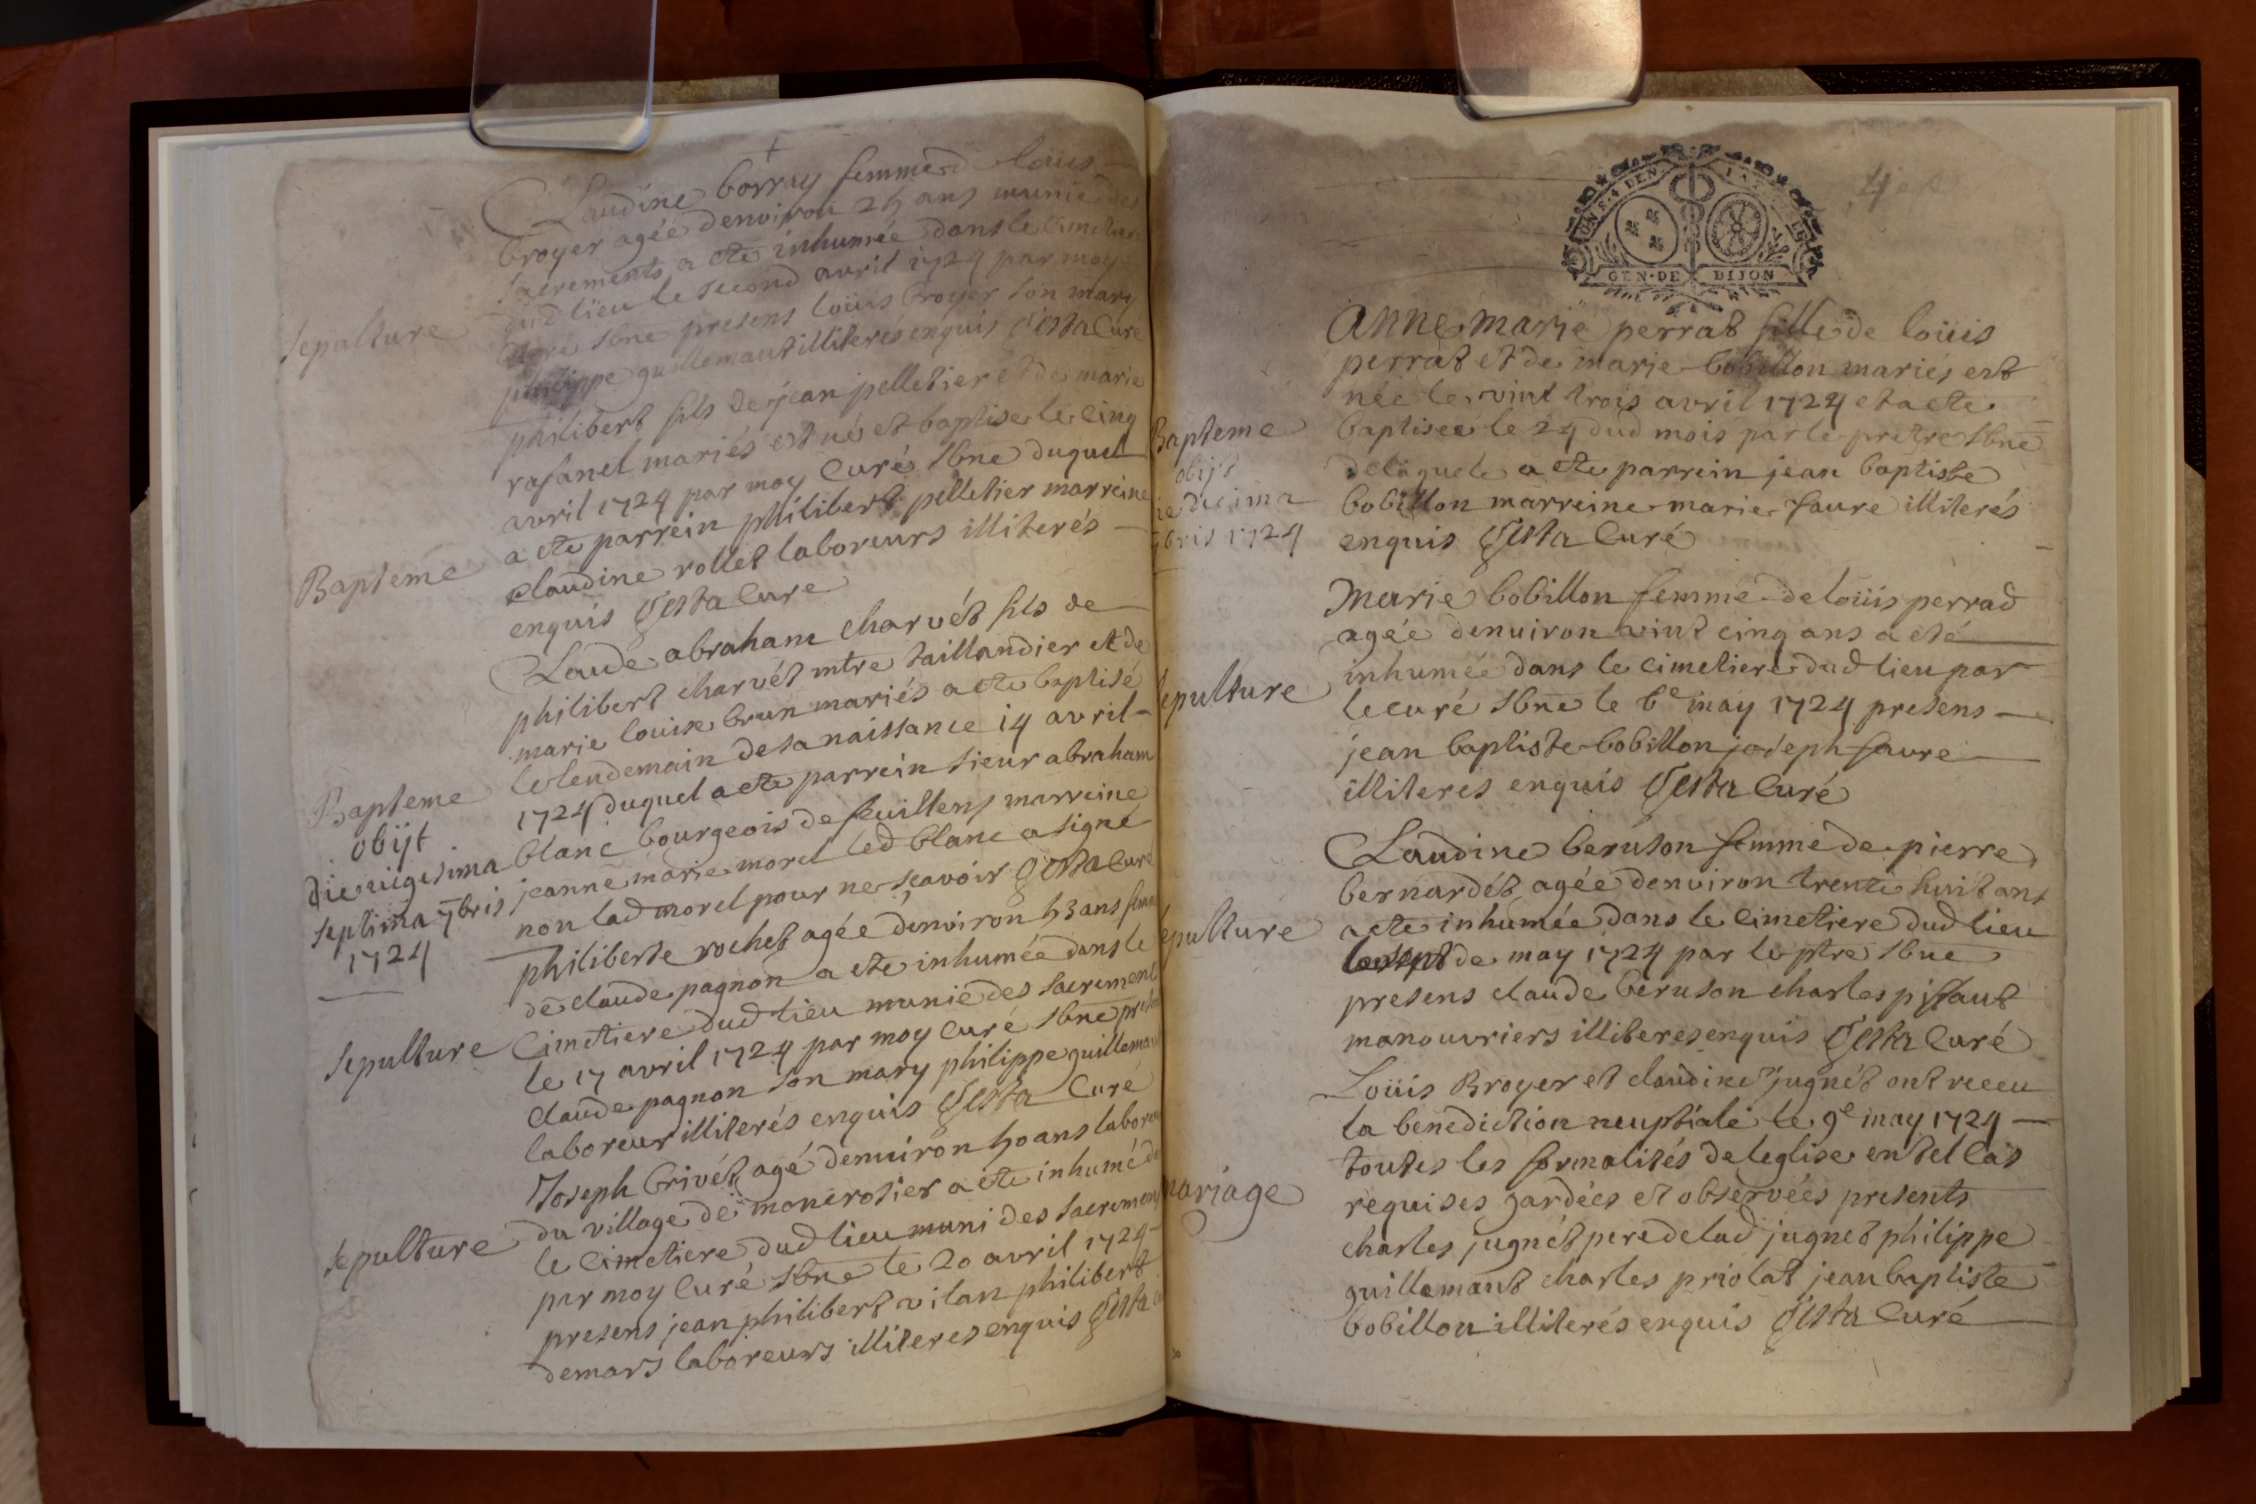 Sepulture
Claudine borray femme de loüis
broyer agée denviron 25 ans munie des
sacrements a ete inhumée dans le cimetiere
dud lieu le second avril 1724 par moy
Curé sbne presens loüis broyer son mary
philippe guillemaut illiterés enquis Gesta Curé
Bapteme
philibert fils de jean pelletier et de marie
rafanel mariés est né et baptise le cinq
avril 1724 par moy Curé sbne duquel
a ete parrein philibert pelletier marreine
claudine rollet laboreurs illiterés
enquis Gesta Cure
Bapteme
obijt
die vigesima
septima 7bris
1724
Claude abraham charvét fils de
philibert charvét mtre taillandier et de
marie louise brun mariés a ete baptisé
le lendemain de sa naissance 14 avril
1724 duquel a ete parrein sieur abraham
blanc bourgeois de feuillens marreine
jeanne marie morel led blanc a signé
non lad morel pour ne sçavoir Gesta Curé
Sepulture
philiberte rochet agée denviron 53 ans femme
de claude pagnon a ete inhumée dans le
Cimetiere dud lieu munie des sacrement
le 17 avril 1724 par moy Curé sbne presens
claude pagnon son mary philippe guillemaut
laboreur illiterés enquis Gesta Curé
Sepulture
Joseph Crivét agé denviron 50 ans laboreur
du village de monerosier a ete inhumé da
le cimetiere dud lieu muni des sacremens
par moy Curé sbne le 20 avril 1724
presens jean philibert vilan philibert
demars laboreurs illiteres enquis Gesta
GEN·DE DIJON
Bapteme
obijt
ie decima
bris 1724
Anne, Marie perrat fille de loüis
perrat et de marie bobillon mariés est
née le vint trois avril 1724 et a ete
baptisée le 24 dud mois par le pretre sbne
de laquele a ete parrein jean baptiste
bobillon marreine marie faure illiterés
enquis Gesta Curé
epulture
Marie bobillon femme de loüis perrad
agée denviron vint cinq ans a eté
inhumée dans le cimetiere dud lieu par
le curé sbne le 6e may 1724 presens
jean baptiste bobillon joseph faure
illiteres enquis Gesta Curé
epulture
Claudine beruson femme de pierre
bernardét agée denviron trente huit ans
a ete inhumée dans le cimetiere dud lieu
le sept de may 1724 par le ptre sbne
presens claude beruson charles pissaut
manouvriers illiteres enquis Gesta Curé
mariage
Loüis Broyer et claudine jugnét ont receu
la benediction neuptiale le 9e may 1724
toutes les formalités de leglise en tel cas
requises gardées et observées presents
charles jugnét pere de lad jugnet philippe
guillemaut charles priolat jean baptiste
bobillon illiterés enquis Gesta Curé